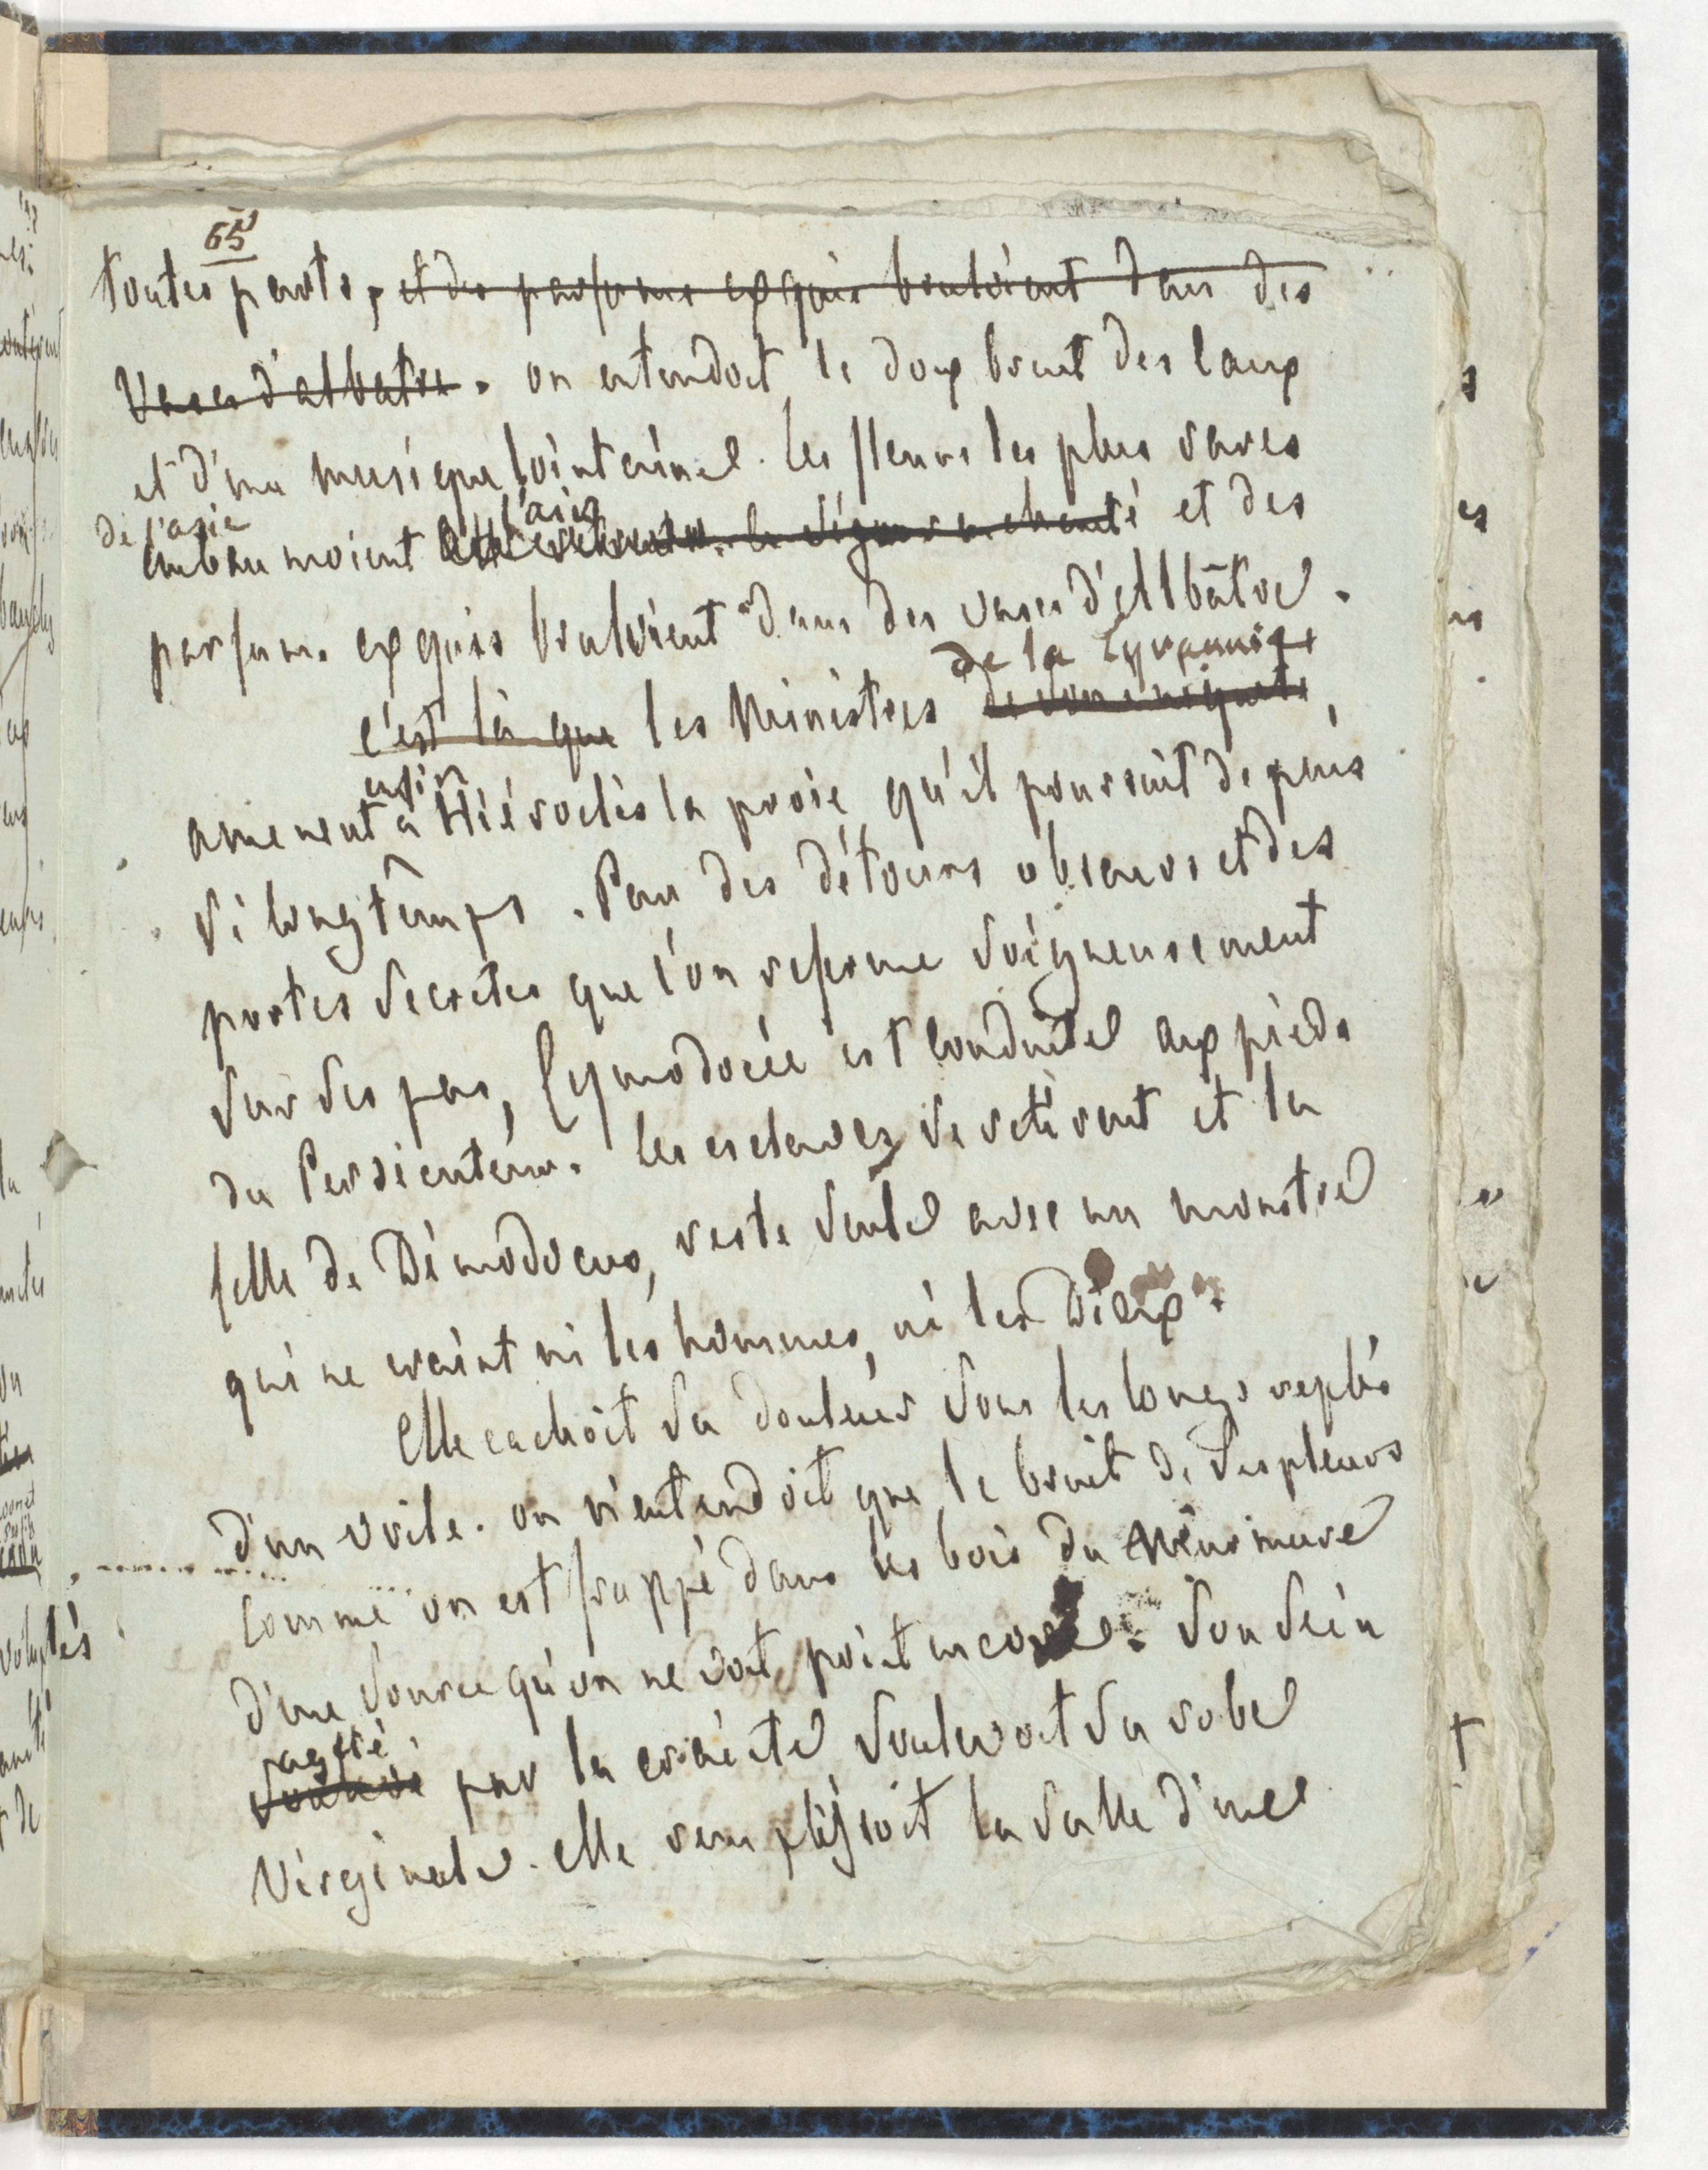 65
toutes parts, et des parfums exquis bruloient dans des
vases d'albatre. on entendoit le doux bruit des eaux
et d'une musique lointaine. les fleurs les plus rares
de l'asie
l'air
embaumoient le séjour enchanté et des
parfums exquis bruloient dans des vases d'Albâtre.
de la Tyrannie
c'est là que les Ministres de son iniquité,
enfin
amenent à Hiéroclès la proie qu'il poursuit depuis
si longtêmps. Par des détours obscurs et des
portes secretes que l'on referme soigneusement
sur ses pas, Cymodocée est conduite aux pieds
du Persécuteur. les esclaves se retirent et la
fille de Démodocus, reste seule avec un monstre
qui ne craint ni les hommes, ni les Dieux.
Elle cachoit sa douleur sous les longs replis
d'un voile. on n'entendoit que le bruit de ses pleurs
comme on est frappé dans les bois du murmure
d'une source qu'on ne voit point encore. Son sein
agité
par la crainte soulevoit sa robe
Virginale. elle remplissoit la salle d'une